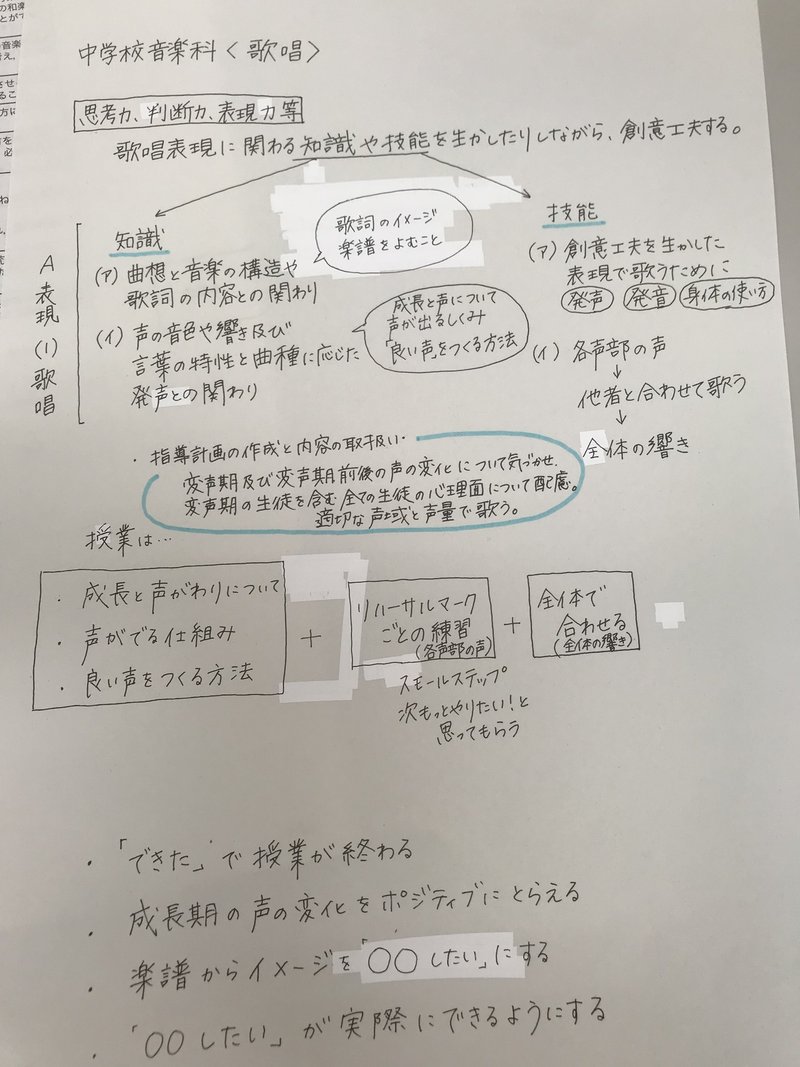 中学校音楽科〈歌唱〉
思考力、判断力、表現力等
歌唱表現に関わる知識や技能を生かしたりしながら、創意工夫する。
A表現(1)歌唱
知識
(ア)曲想と音楽の構造や
歌詞の内容との関わり
歌詞のイメージ
楽譜をよむこと
(イ)声の音色や響き及び
言葉の特性と曲種に応じた
発声との関わり
成長と声について
声が出るしくみ
「良い声」をつくる方法
技能
(ア)創意工夫を生かした
表現で歌うために
発声 発音 身体の使い方
(イ)各声部の声
↓
他者と合わせて歌う
↓
全体の響き
・指導計画の作成と内容の取扱い・
変声期及び変声期前後の声の変化について気づかせ、
変声期の生徒を含む全ての生徒の心理面について配慮。
適切な声域と声量で歌う。
授業は…
・成長と声がわりについて
・声がでる仕組み
・良い声をつくる方法
+
リハーサルマーク
ごとの練習
(各声部の声)
+
全体で
合わせる
(全体の響き)
スモールステップ
次もっとやりたい!と
思ってもらう
・「できた」で授業が終わる
・成長期の声の変化をポジティブにとらえる
・楽譜からイメージを「〇〇したい」にする
・「〇〇したい」が実際にできるようにする